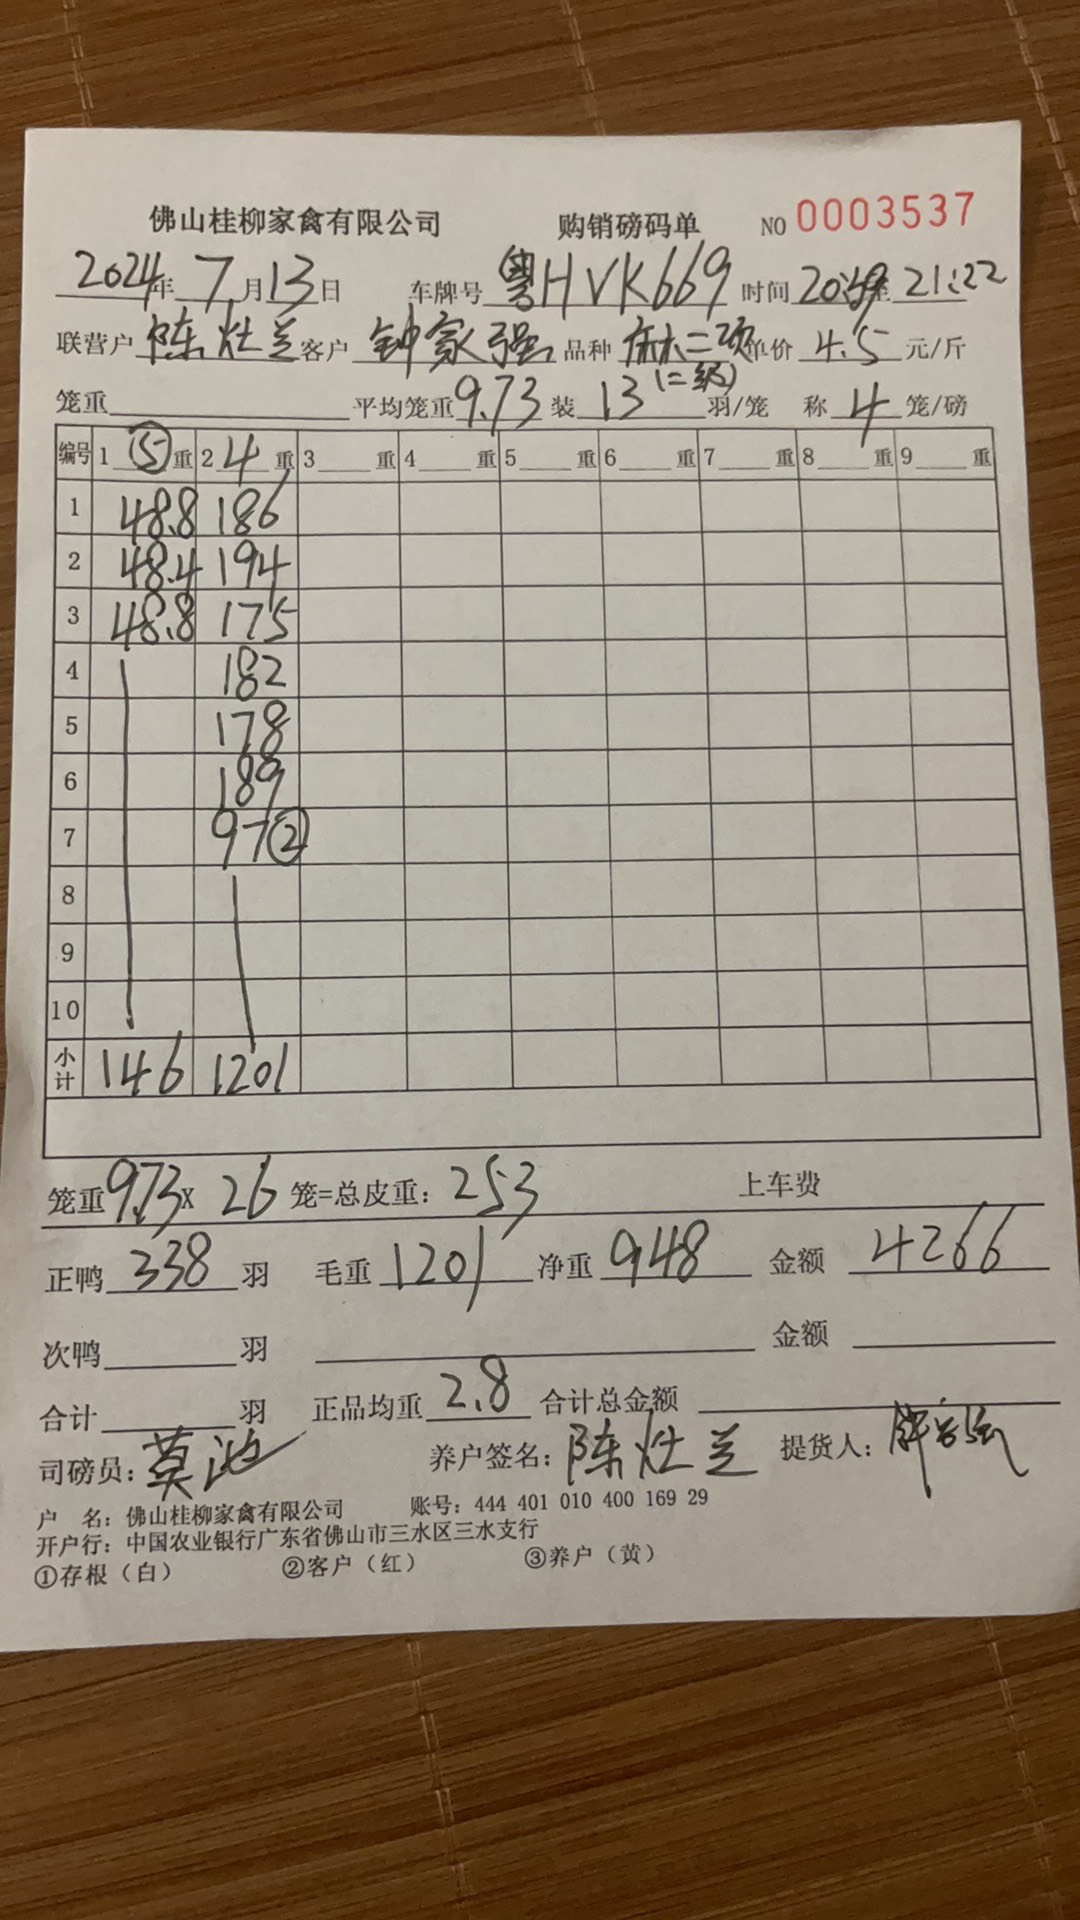 佛山桂柳家禽有限公司 购销磅码单 NO 0003537
2024年 7月 13日 车牌号 粤HVK669 时间 20:49至 21:22
联营户 陈灶兰 客户 钟家强 品种 麻二项 单价 4.5 元/斤
(二级)
笼重 平均笼重 9.73 装 13 羽/笼 称 4 笼/磅
编号 1 ⑤ 重 2 4 重 3 重 4 重 5 重 6 重 7 重 8 重 9 重
1 48.8 186
2 48.4 194
3 48.8 175
4 182
5 178
6 189
7 97②
8
9
10
小计 146 1201
笼重 9.73 X 26 笼=总皮重: 253 上车费
正鸭 338 羽 毛重 1201 净重 948 金额 4266
次鸭 羽 金额
合计 羽 正品均重 2.8 合计总金额
司磅员: 莫池 养户签名: 陈灶兰 提货人:
户 名: 佛山桂柳家禽有限公司 账号: 444 401 010 400 169 29
开户行: 中国农业银行广东省佛山市三水区三水支行
①存根（白） ②客户（红） ③养户（黄）